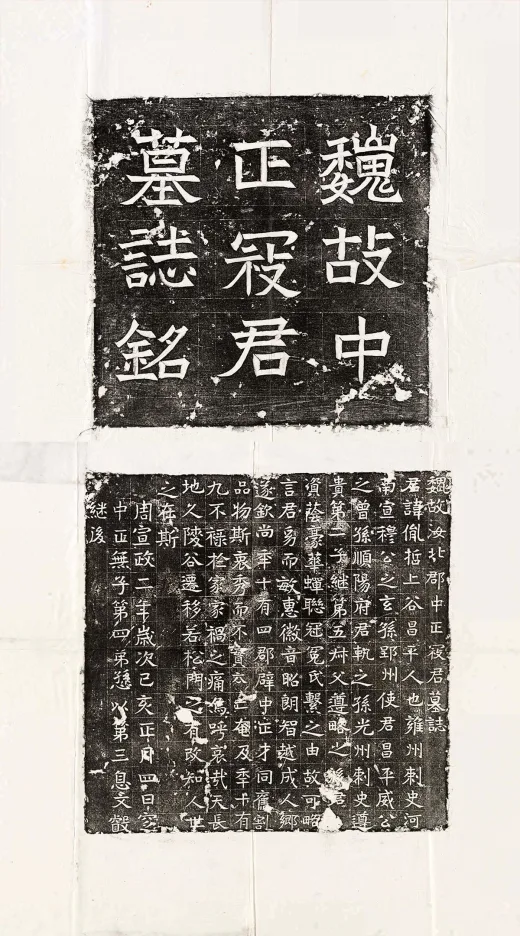 魏故中
正寇君
墓誌銘
魏故汝北郡中正寇君墓誌
君諱胤哲上谷昌平人也雍州刺史河
南宣穆公之玄孫郢州使君昌平威公
之曾孫順陽府君軌之孫光州刺史遵
貴第二子継第五叔父遵略之後君
資蔭豪華蟬聮冠冕氏繫之由故可略
言君易而敏惠徽音昭朗智越成人鄉
遂欽尚年十有四郡辟中正才同齊割
品物斯衷秀而不實奄及年十有
九不祿於家家禍之痛烏呼哀哉天長
地久陵谷遷移若松門之有改知人世
之在斯
周宣政二年歲次己亥正月四日窆
中正無子第四弟遜以第三息文叡
継後